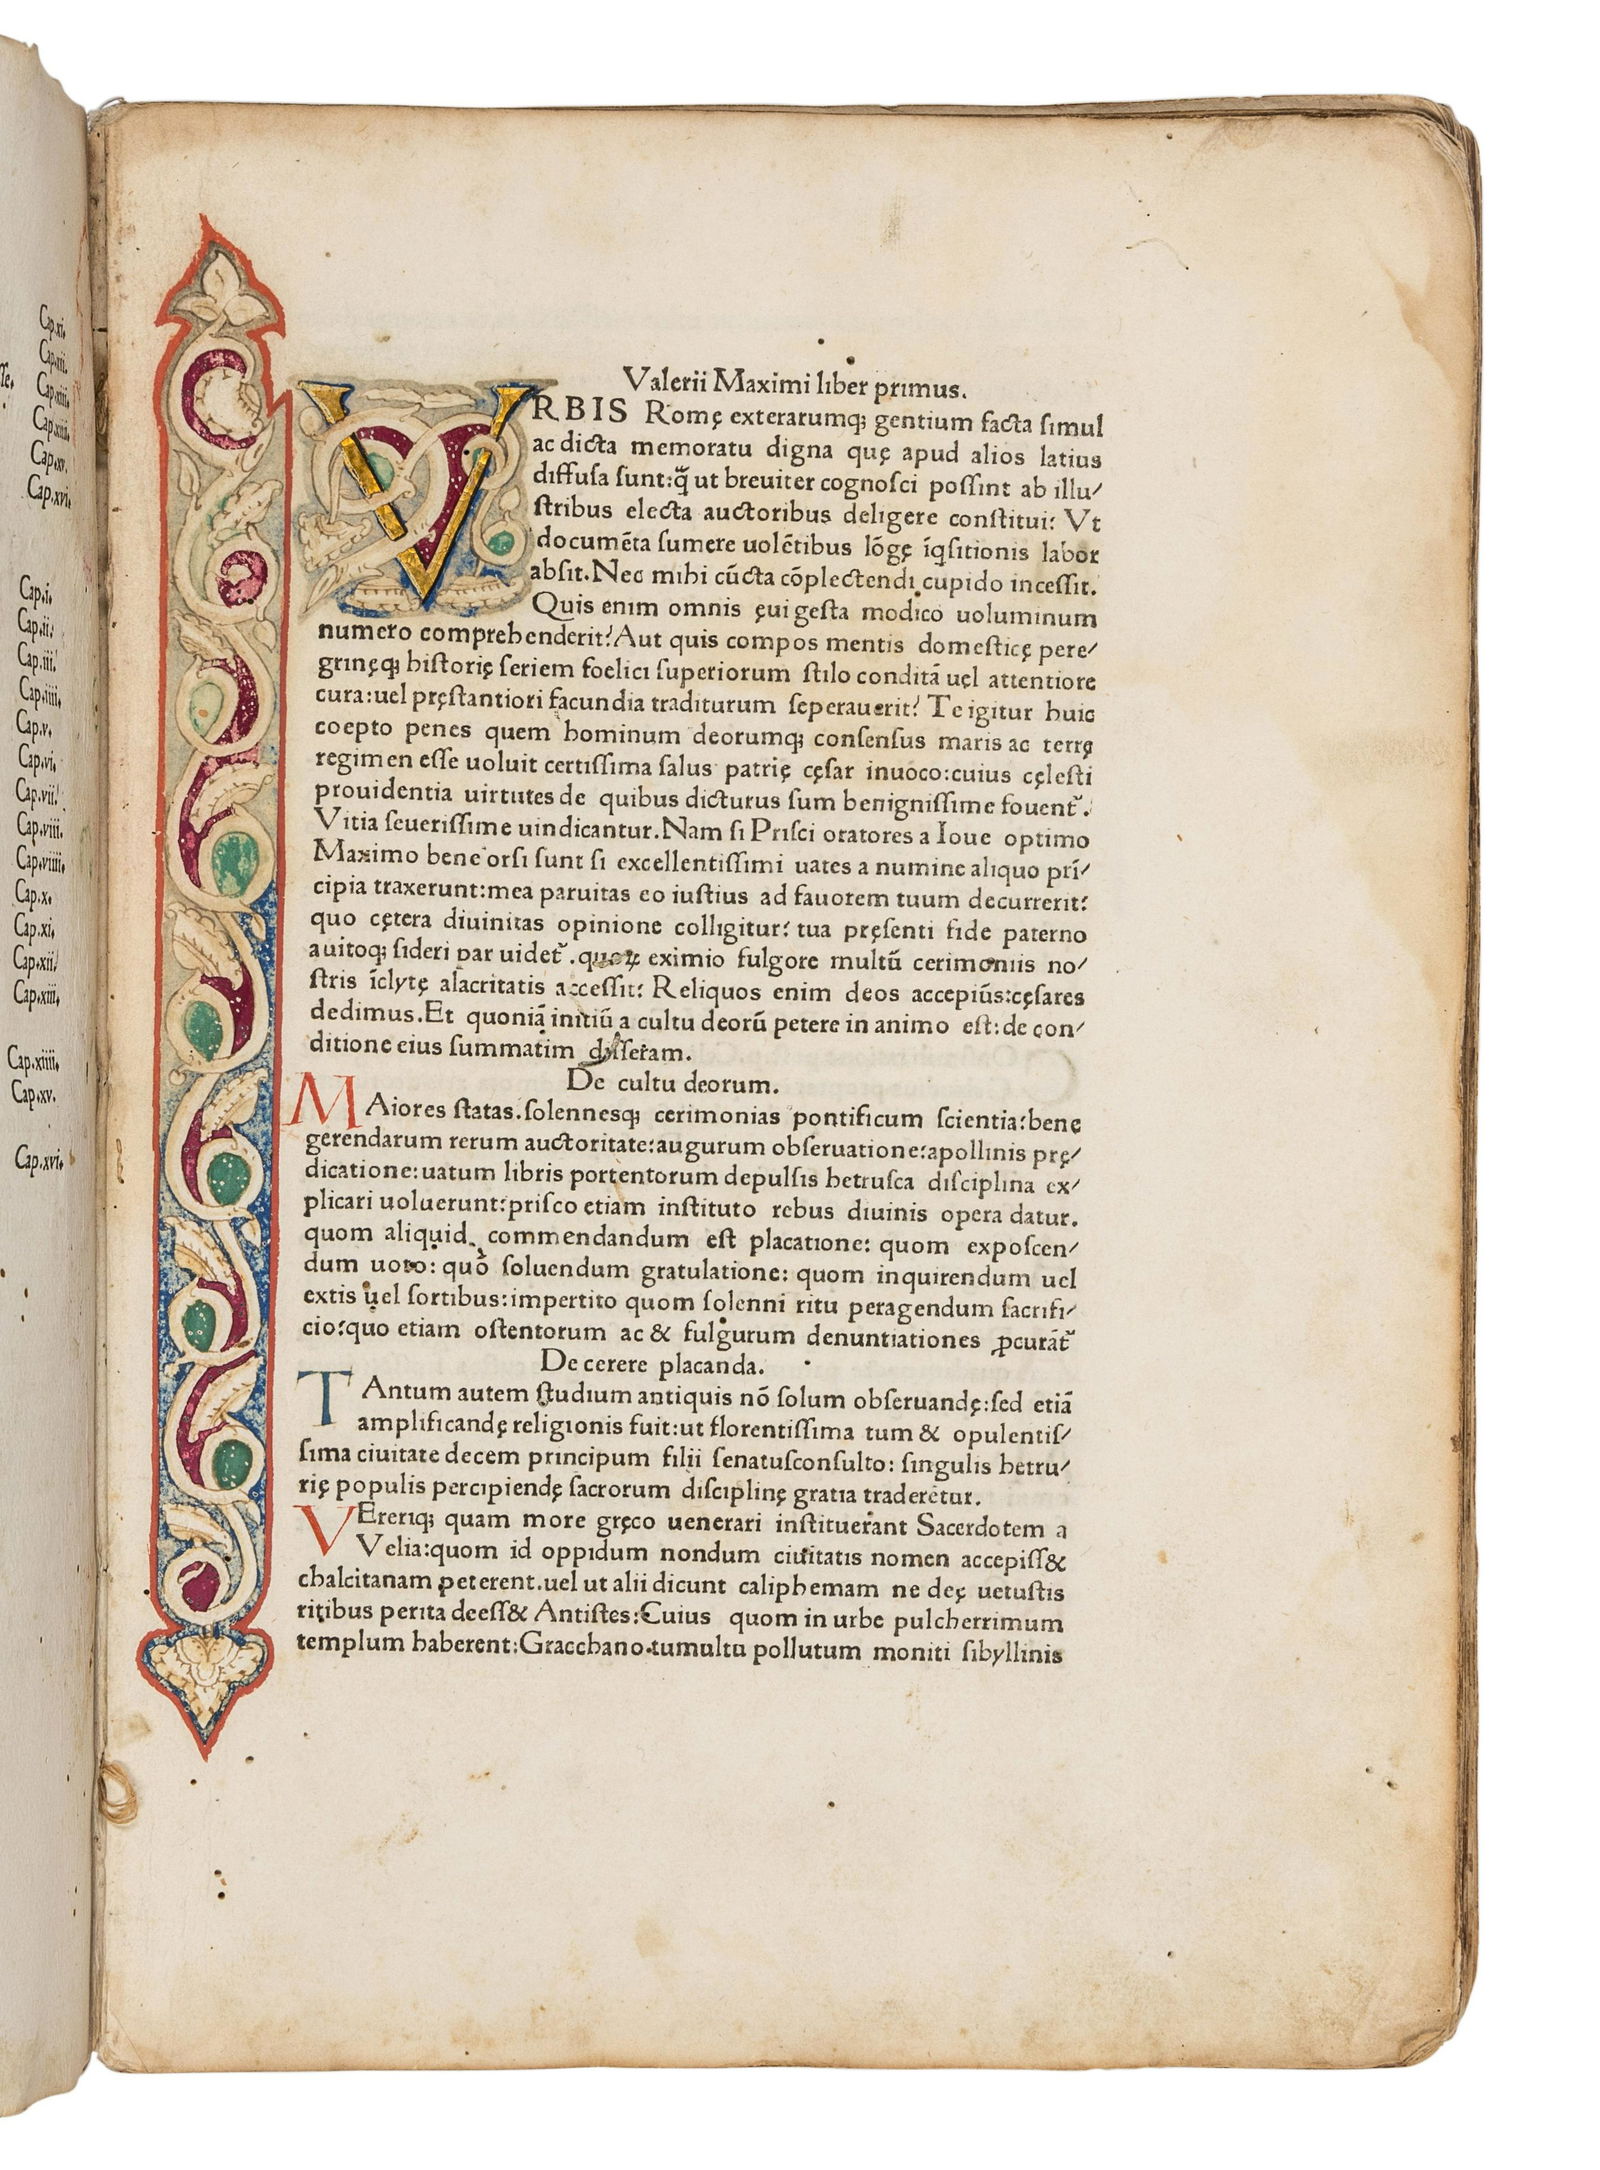 Cap.xi.
Cap.xii.
Cap.xiii.
Cap.xiiii.
Cap.xv.
Cap.xvi.
Cap.i.
Cap.ii.
Cap.iii.
Cap.iiii.
Cap.v.
Cap.vi.
Cap.vii.
Cap.viii.
Cap.viiii.
Cap.x.
Cap.xi.
Cap.xii.
Cap.xiii.
Cap.xiiii.
Cap.xv.
Cap.xvi.
Valerii Maximi liber primus.
VRBIS Romę exterarumq; gentium facta ſimul
ac dicta memoratu digna quę apud alios latius
diffuſa ſunt:q̃ ut breuiter cognoſci poſſint ab illu/
ſtribus electa auctoribus deligere conſtitui: Vt
documēta ſumere uolētibus lōgę īqſitionis labor
abſit.Nec mihi cūcta cōplectendi cupido inceſſit.
Quis enim omnis ęui geſta modico uoluminum
numero comprehenderit? Aut quis compos mentis domeſticę pere/
grinęq; hiſtorię ſeriem foelici ſuperiorum ſtilo conditā uel attentiore
cura:uel pręſtantiori facundia traditurum ſeperauerit? Te igitur huic
coepto penes quem hominum deorumq; conſenſus maris ac terrę
regimen eſſe uoluit certiſſima ſalus patrię cęſar inuoco:cuius cęleſti
prouidentia uirtutes de quibus dicturus ſum benigniſſime fouent᷑.
Vitia ſeueriſſime uindicantur.Nam ſi Priſci oratores a Ioue optimo
Maximo bene orſi ſunt ſi excellentiſſimi uates a numine aliquo prī/
cipia traxerunt:mea paruitas eo iuſtius ad fauorem tuum decurrerit:
quo cętera diuinitas opinione colligitur: tua pręſenti fide paterno
auitoq; ſideri par uidet᷑.quoꝝ eximio fulgore multū cerimoniis no/
ſtris īclytę alacritatis acceſſit: Reliquos enim deos accepiūs:cęſares
dedimus.Et quoniā initiū a cultu deorū petere in animo eſt:de con/
ditione eius ſummatim diſſeram.
De cultu deorum.
MAiores ſtatas.ſolennesq; cerimonias pontificum ſcientia:bene
gerendarum rerum auctoritate:augurum obſeruatione:apollinis prę/
dicatione:uatum libris portentorum depulſis hetruſca diſciplina ex/
plicari uoluerunt:priſco etiam inſtituto rebus diuinis opera datur.
quom aliquid commendandum eſt placatione: quom expoſcen/
dum uoto: quō ſoluendum gratulatione: quom inquirendum uel
extis uel ſortibus:impertito quom ſolenni ritu peragendum ſacrifi/
cio:quo etiam oſtentorum ac & fulgurum denuntiationes ꝓcurāt᷑
De cerere placanda.
TAntum autem ſtudium antiquis nō ſolum obſeruandę:ſed etiā
amplificandę religionis fuit:ut florentiſſima tum & opulentiſ/
ſima ciuitate decem principum filii ſenatuſconſulto: ſingulis hetru/
rię populis percipiendę ſacrorum diſciplinę gratia traderetur.
VEreriq; quam more gręco uenerari inſtituerant Sacerdotem a
Velia:quom id oppidum nondum ciuitatis nomen accepiſſ&
chalcitanam peterent.uel ut alii dicunt caliphemam ne deę uetuſtis
ritibus perita deeſſ& Antiſtes:Cuius quom in urbe pulcherrimum
templum haberent:Gracchano tumultu pollutum moniti ſibyllinis